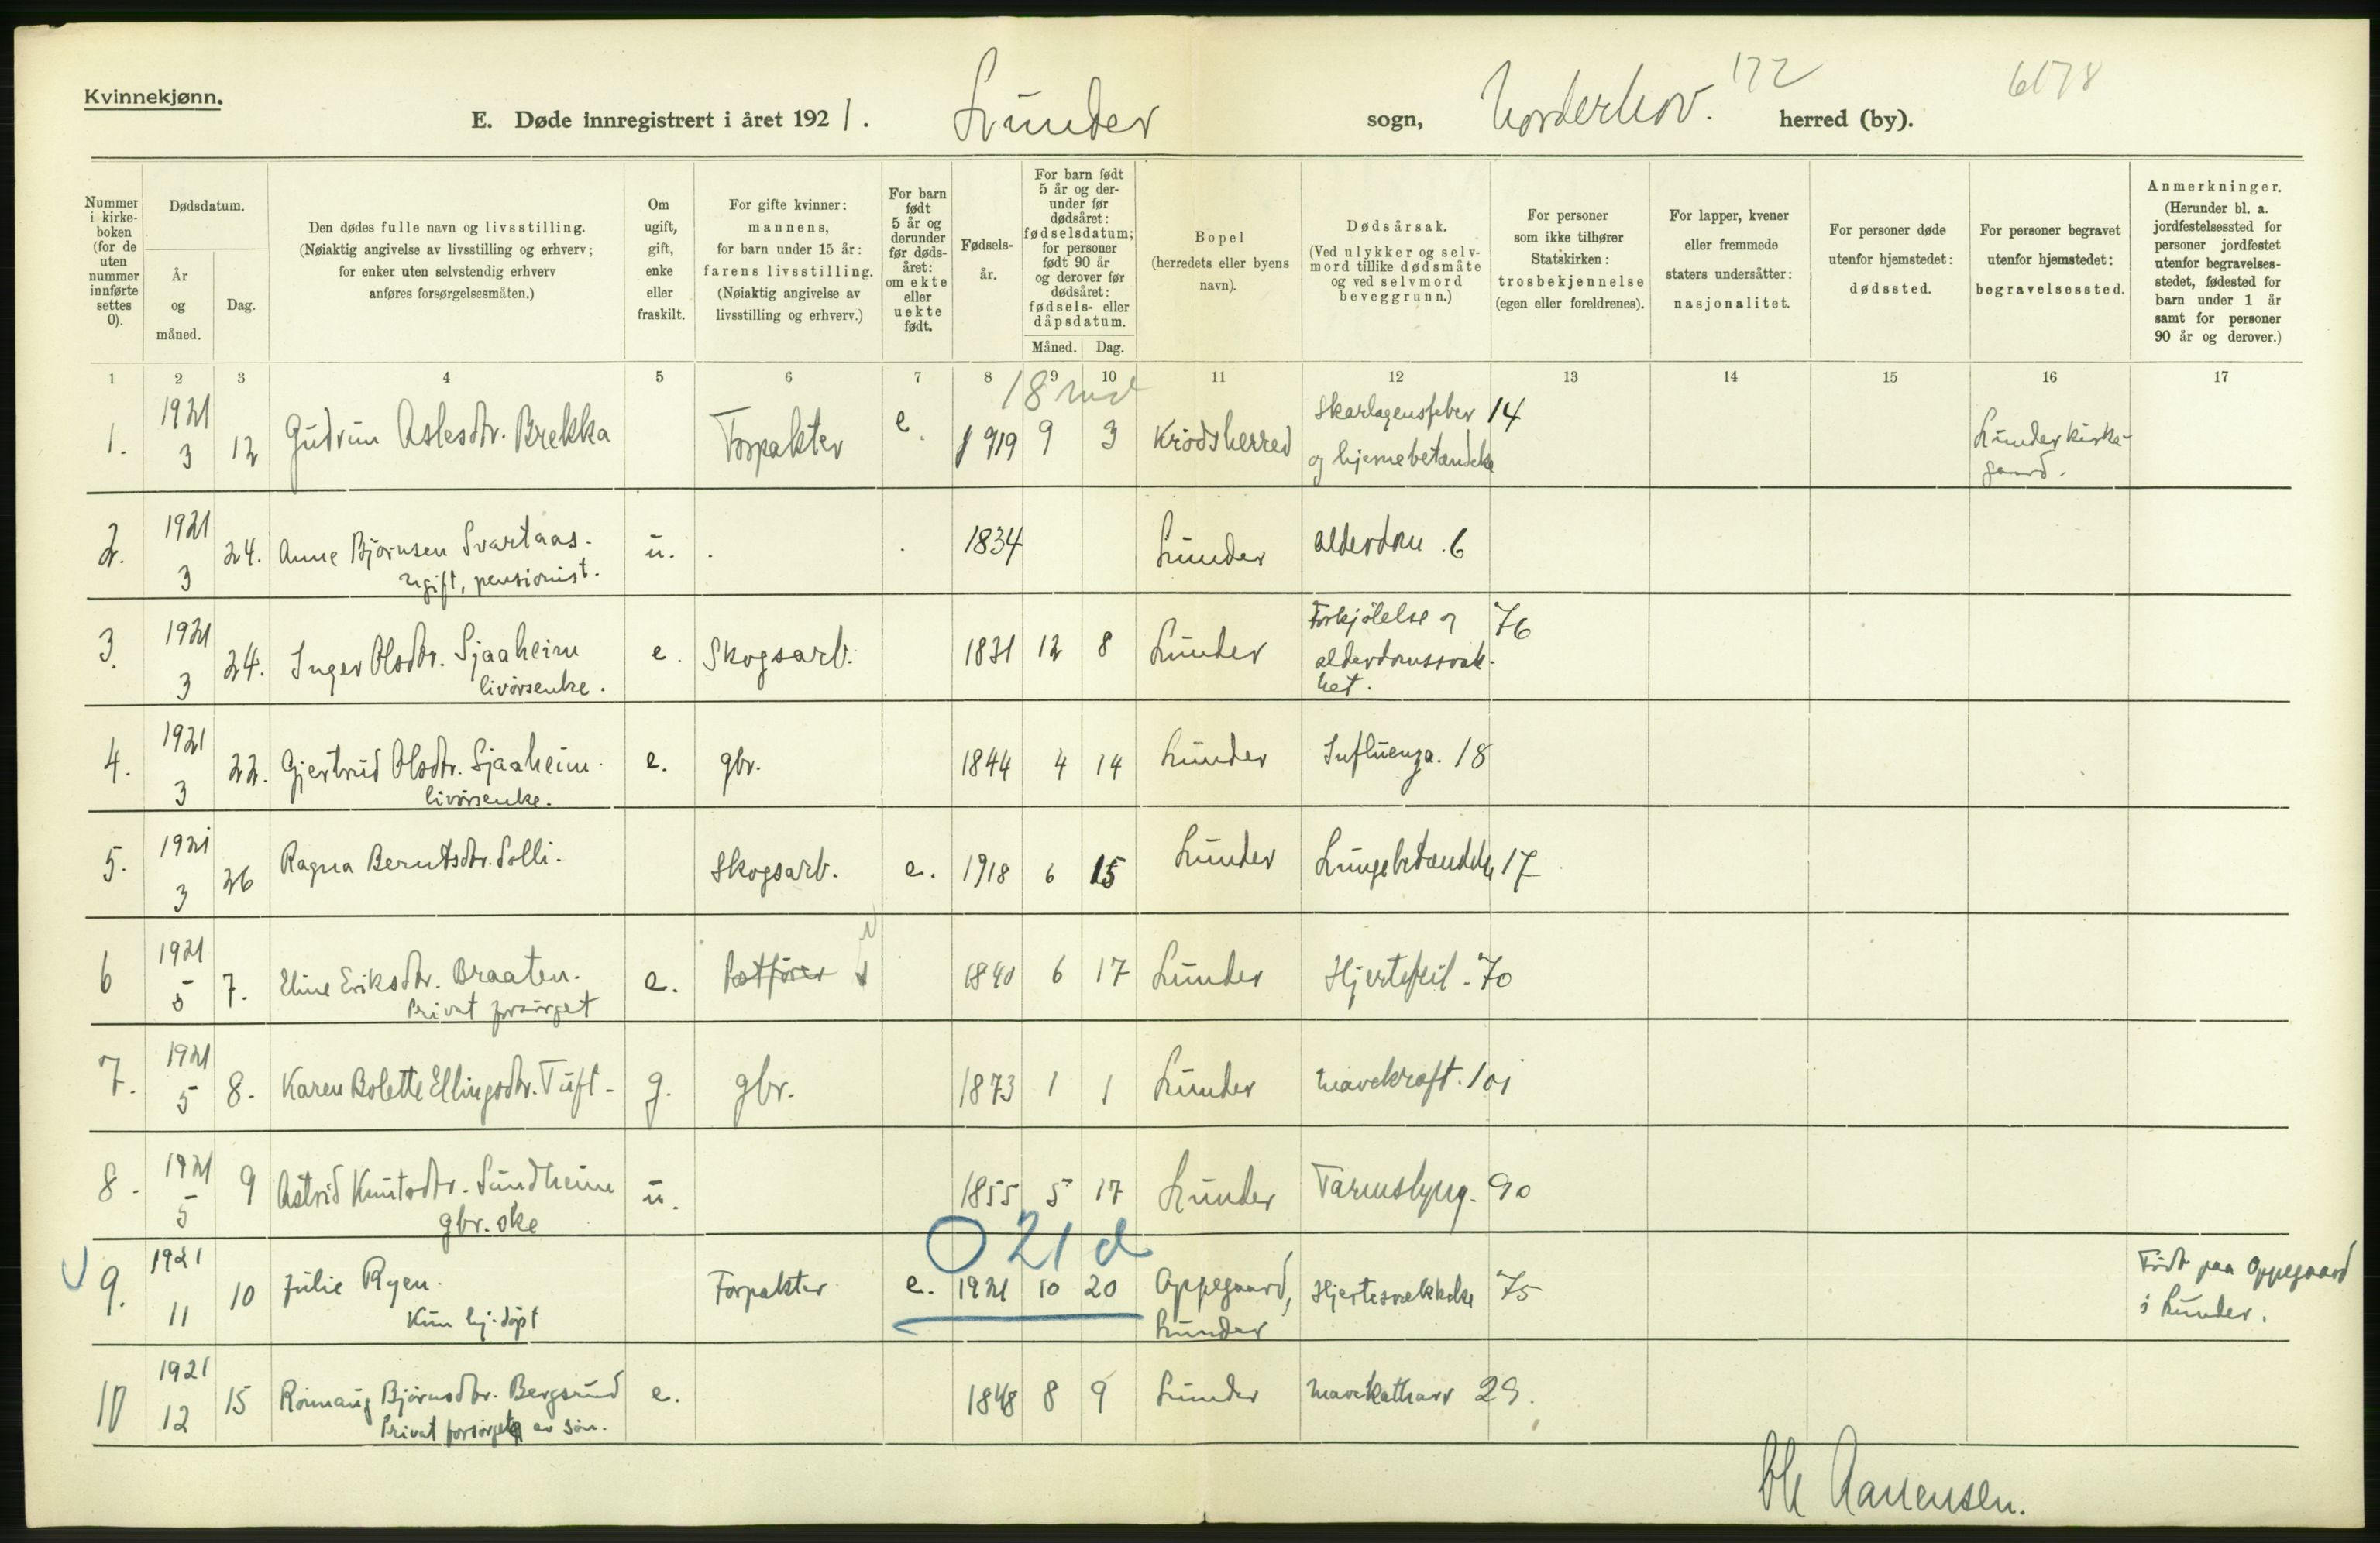 Kvinnekjønn.
E. Døde innregistrert i året 1921. Lunder sogn, Norderhov. 172 herred (by). 6178
Nummer i kirkeboken (for de uten nummer innførte settes 0).
Dødsdatum.
År og måned.
Dag.
Den dødes fulle navn og livsstilling.
(Nøiaktig angivelse av livsstilling og erhverv; for enker uten selvstendig erhverv anføres forsørgelsesmåten.)
Om ugift, gift, enke eller fraskilt.
For gifte kvinner: mannens, for barn under 15 år: farens livsstilling.
(Nøiaktig angivelse av livsstilling og erhverv.)
For barn født 5 år og derunder før dødsåret: om ekte eller uekte født.
Fødselsår.
For barn født 5 år og derunder før dødsåret: fødselsdatum; for personer født 90 år og derover før dødsåret: fødsels- eller dåpsdatum.
Måned. Dag.
Bopel (herredets eller byens navn).
Dødsårsak.
(Ved ulykker og selvmord tillike dødsmåte og ved selvmord beveggrunn.)
For personer som ikke tilhører Statskirken: trosbekjennelse (egen eller foreldrenes).
For lapper, kvener eller fremmede staters undersåtter: nasjonalitet.
For personer døde utenfor hjemstedet: dødssted.
For personer begravet utenfor hjemstedet: begravelsessted.
Anmerkninger.
(Herunder bl. a. jordfestelsessted for personer jordfestet utenfor begravelsesstedet, fødested for barn under 1 år samt for personer 90 år og derover.)
1 2 3 4 5 6 7 8 9 10 11 12 13 14 15 16 17
18 md
1. 1921 3 12 Gudrun Aslesdtr. Brekka Forpakter e. 1919 9 3 Krødsherred Skarlagensfeber 14 og hjernebetændelse Lunder kirkegaard.
2. 1921 3 24. Anne Bjørnsen Svartaas. u. 1834 Lunder Alderdom. 6
ugift, pensionist.
3. 1921 3 24. Inger Olsdtr. Sjaaheim e. Skogsarb. 1831 12 8 Lunder Forkjølelse og 76 alderdomssvakhet.
livørsenke.
4. 1921 3 22. Gjertrud Olsdtr. Sjaaheim. e. gbr. 1844 4 14 Lunder Influenza. 18
livørsenke.
5. 1921 3 26 Ragna Berntsdtr. Solli. Skogsarb. e. 1918 6 15 Lunder Lungebetændelse 17
6 1921 5 7. Eline Eriksdtr. Braaten. e. Postfører 1840 6 17 Lunder Hjertefeil. 70
Privat forsørget
7. 1921 5 8. Karen Bolette Ellingsdtr. Tuft. g. gbr. 1873 1 1 Lunder Mavekræft. 101
8. 1921 5 9 Astrid Knutsdtr. Sundheim u. 1855 5 17 Lunder Tarmslyng. 90
gbr. ske
0 21 d
9. 1921 11 10 Julie Ryen. Forpakter e. 1921 10 20 Oppegaard, Lunder Hjertesvækkelse 75 Født paa Oppegaard i Lunder.
Kun hj. døpt
10 1921 12 15 Rønnaug Bjørnsdtr. Bergsrud e. 1848 8 9 Lunder Mavekatharr 29.
Privat forsørget av søn.
Ole Aanensen.